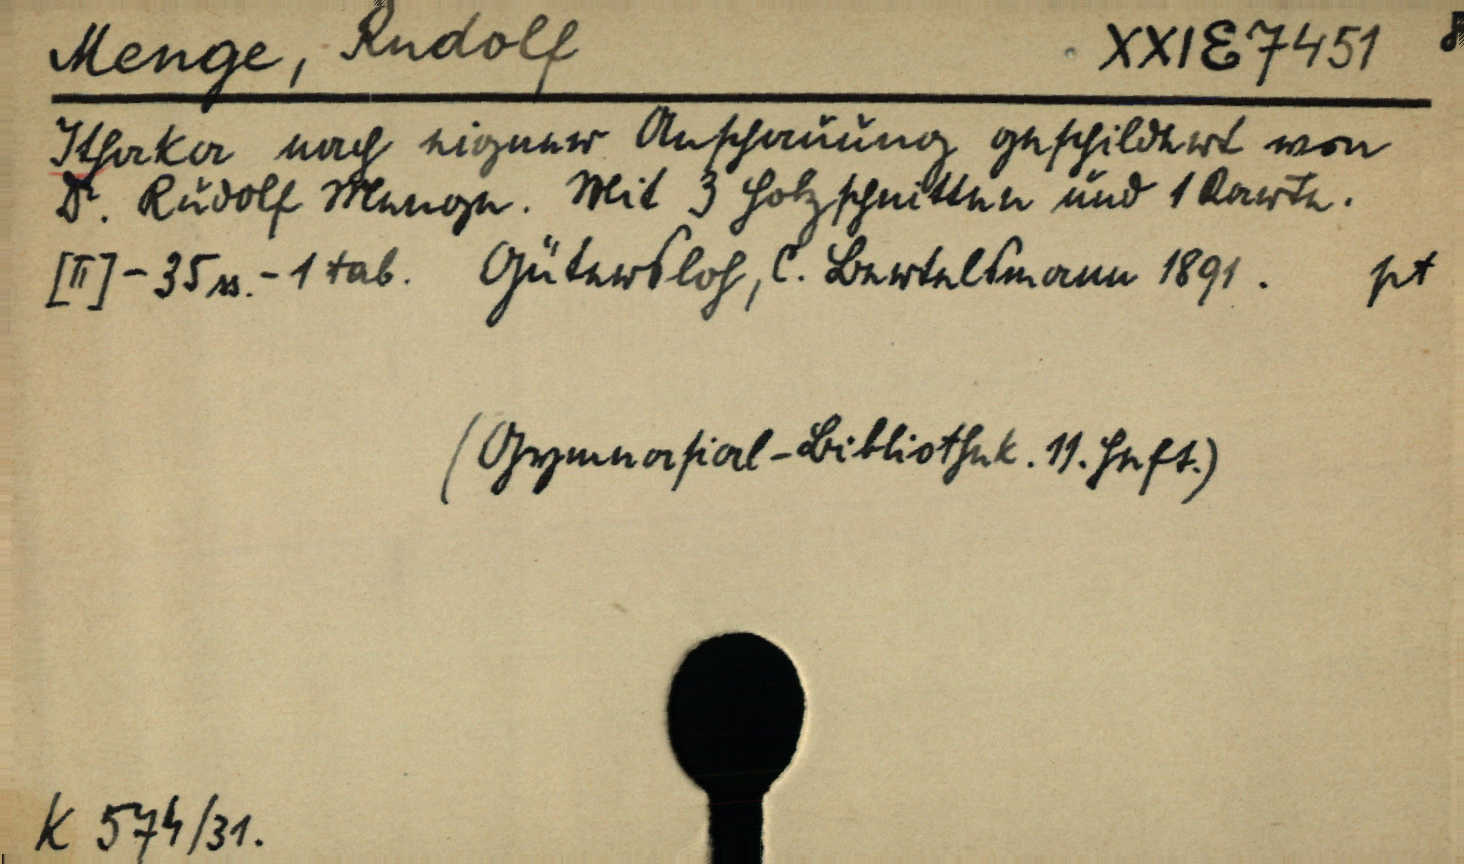 Menge, Rudolf XXI E 7451 8
Ithaka nach eigener Anschauung geschildert von
Dr. Rudolf Menge. Mit 3 Holzschnitten und 1 Karte.
[II] - 35 ss. - 1 tab. Gütersloh, C. Bertelsmann 1891. pt
(Gymnasial-Bibliothek. 11. Heft.)
K 574/31.